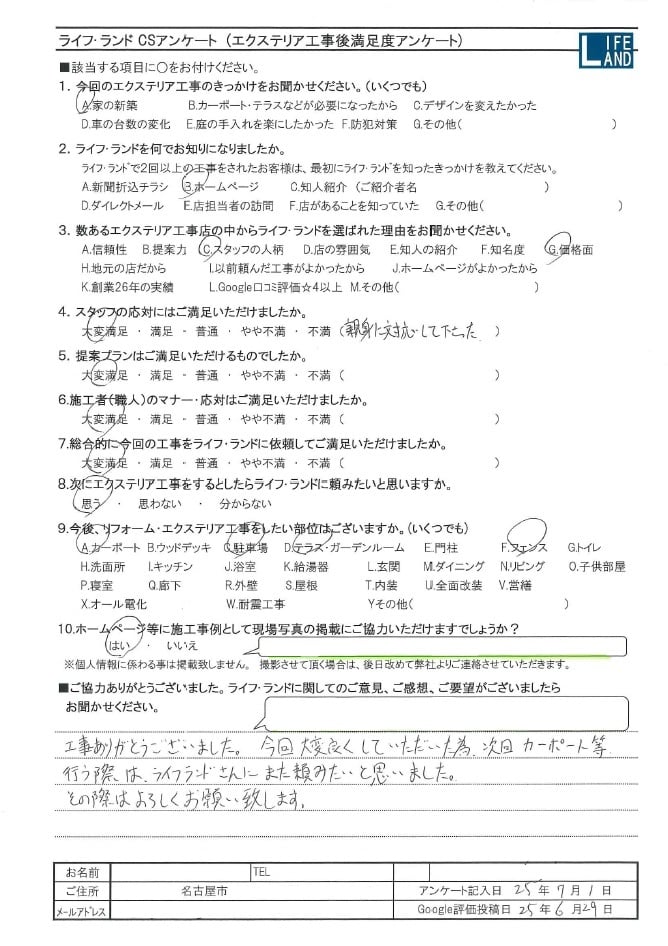 ライフ・ランド CSアンケート（エクステリア工事後満足度アンケート）
LIFE LAND
■該当する項目に○をお付けください。
1. 今回のエクステリア工事のきっかけをお聞かせください。（いくつでも）
A.家の新築 B.カーポート・テラスなどが必要になったから C.デザインを変えたかった
D.車の台数の変化 E.庭の手入れを楽にしたかった F.防犯対策 G.その他( )
2. ライフ・ランドを何でお知りになりましたか。
ライフ・ランドで2回以上の工事をされたお客様は、最初にライフ・ランドを知ったきっかけを教えてください。
A.新聞折込チラシ B.ホームページ C.知人紹介（ご紹介者名 ）
D.ダイレクトメール E.店担当者の訪問 F.店があることを知っていた G.その他( )
3. 数あるエクステリア工事店の中からライフ・ランドを選ばれた理由をお聞かせください。
A.信頼性 B.提案力 C.スタッフの人柄 D.店の雰囲気 E.知人の紹介 F.知名度 G.価格面
H.地元の店だから I.以前頼んだ工事がよかったから J.ホームページがよかったから
K.創業26年の実績 L.Google口コミ評価☆4以上 M.その他( )
4. スタッフの応対にはご満足いただけましたか。
大変満足 ・ 満足 ・ 普通 ・ やや不満 ・ 不満 (親身に対応して下さった )
5. 提案プランはご満足いただけるものでしたか。
大変満足 ・ 満足 ・ 普通 ・ やや不満 ・ 不満 ( )
6.施工者(職人)のマナー・応対はご満足いただけましたか。
大変満足 ・ 満足 ・ 普通 ・ やや不満 ・ 不満 ( )
7.総合的に今回の工事をライフ・ランドに依頼してご満足いただけましたか。
大変満足 ・ 満足 ・ 普通 ・ やや不満 ・ 不満 ( )
8.次にエクステリア工事をするとしたらライフ・ランドに頼みたいと思いますか。
思う ・ 思わない ・ 分からない
9.今後、リフォーム・エクステリア工事をしたい部位はございますか。（いくつでも）
A.カーポート B.ウッドデッキ C.駐車場 D.テラス・ガーデンルーム E.門柱 F.フェンス G.トイレ
H.洗面所 I.キッチン J.浴室 K.給湯器 L.玄関 M.ダイニング N.リビング O.子供部屋
P.寝室 Q.廊下 R.外壁 S.屋根 T.内装 U.全面改装 V.営繕
X.オール電化 W.耐震工事 Yその他( )
10.ホームページ等に施工事例として現場写真の掲載にご協力いただけますでしょうか？
はい ・ いいえ
※個人情報に係わる事は掲載致しません。 撮影させて頂く場合は、後日改めて弊社よりご連絡させていただきます。
■ご協力ありがとうございました。ライフ・ランドに関してのご意見、ご感想、ご要望がございましたら
お聞かせください。
工事ありがとうございました。 今回大変良くしていただいた為、次回カーポート等
行う際は、ライフランドさんにまた頼みたいと思いました。
その際はよろしくお願い致します。
お名前 TEL
ご住所 名古屋市 アンケート記入日 25年7月1日
メールアドレス Google評価投稿日 25年6月29日